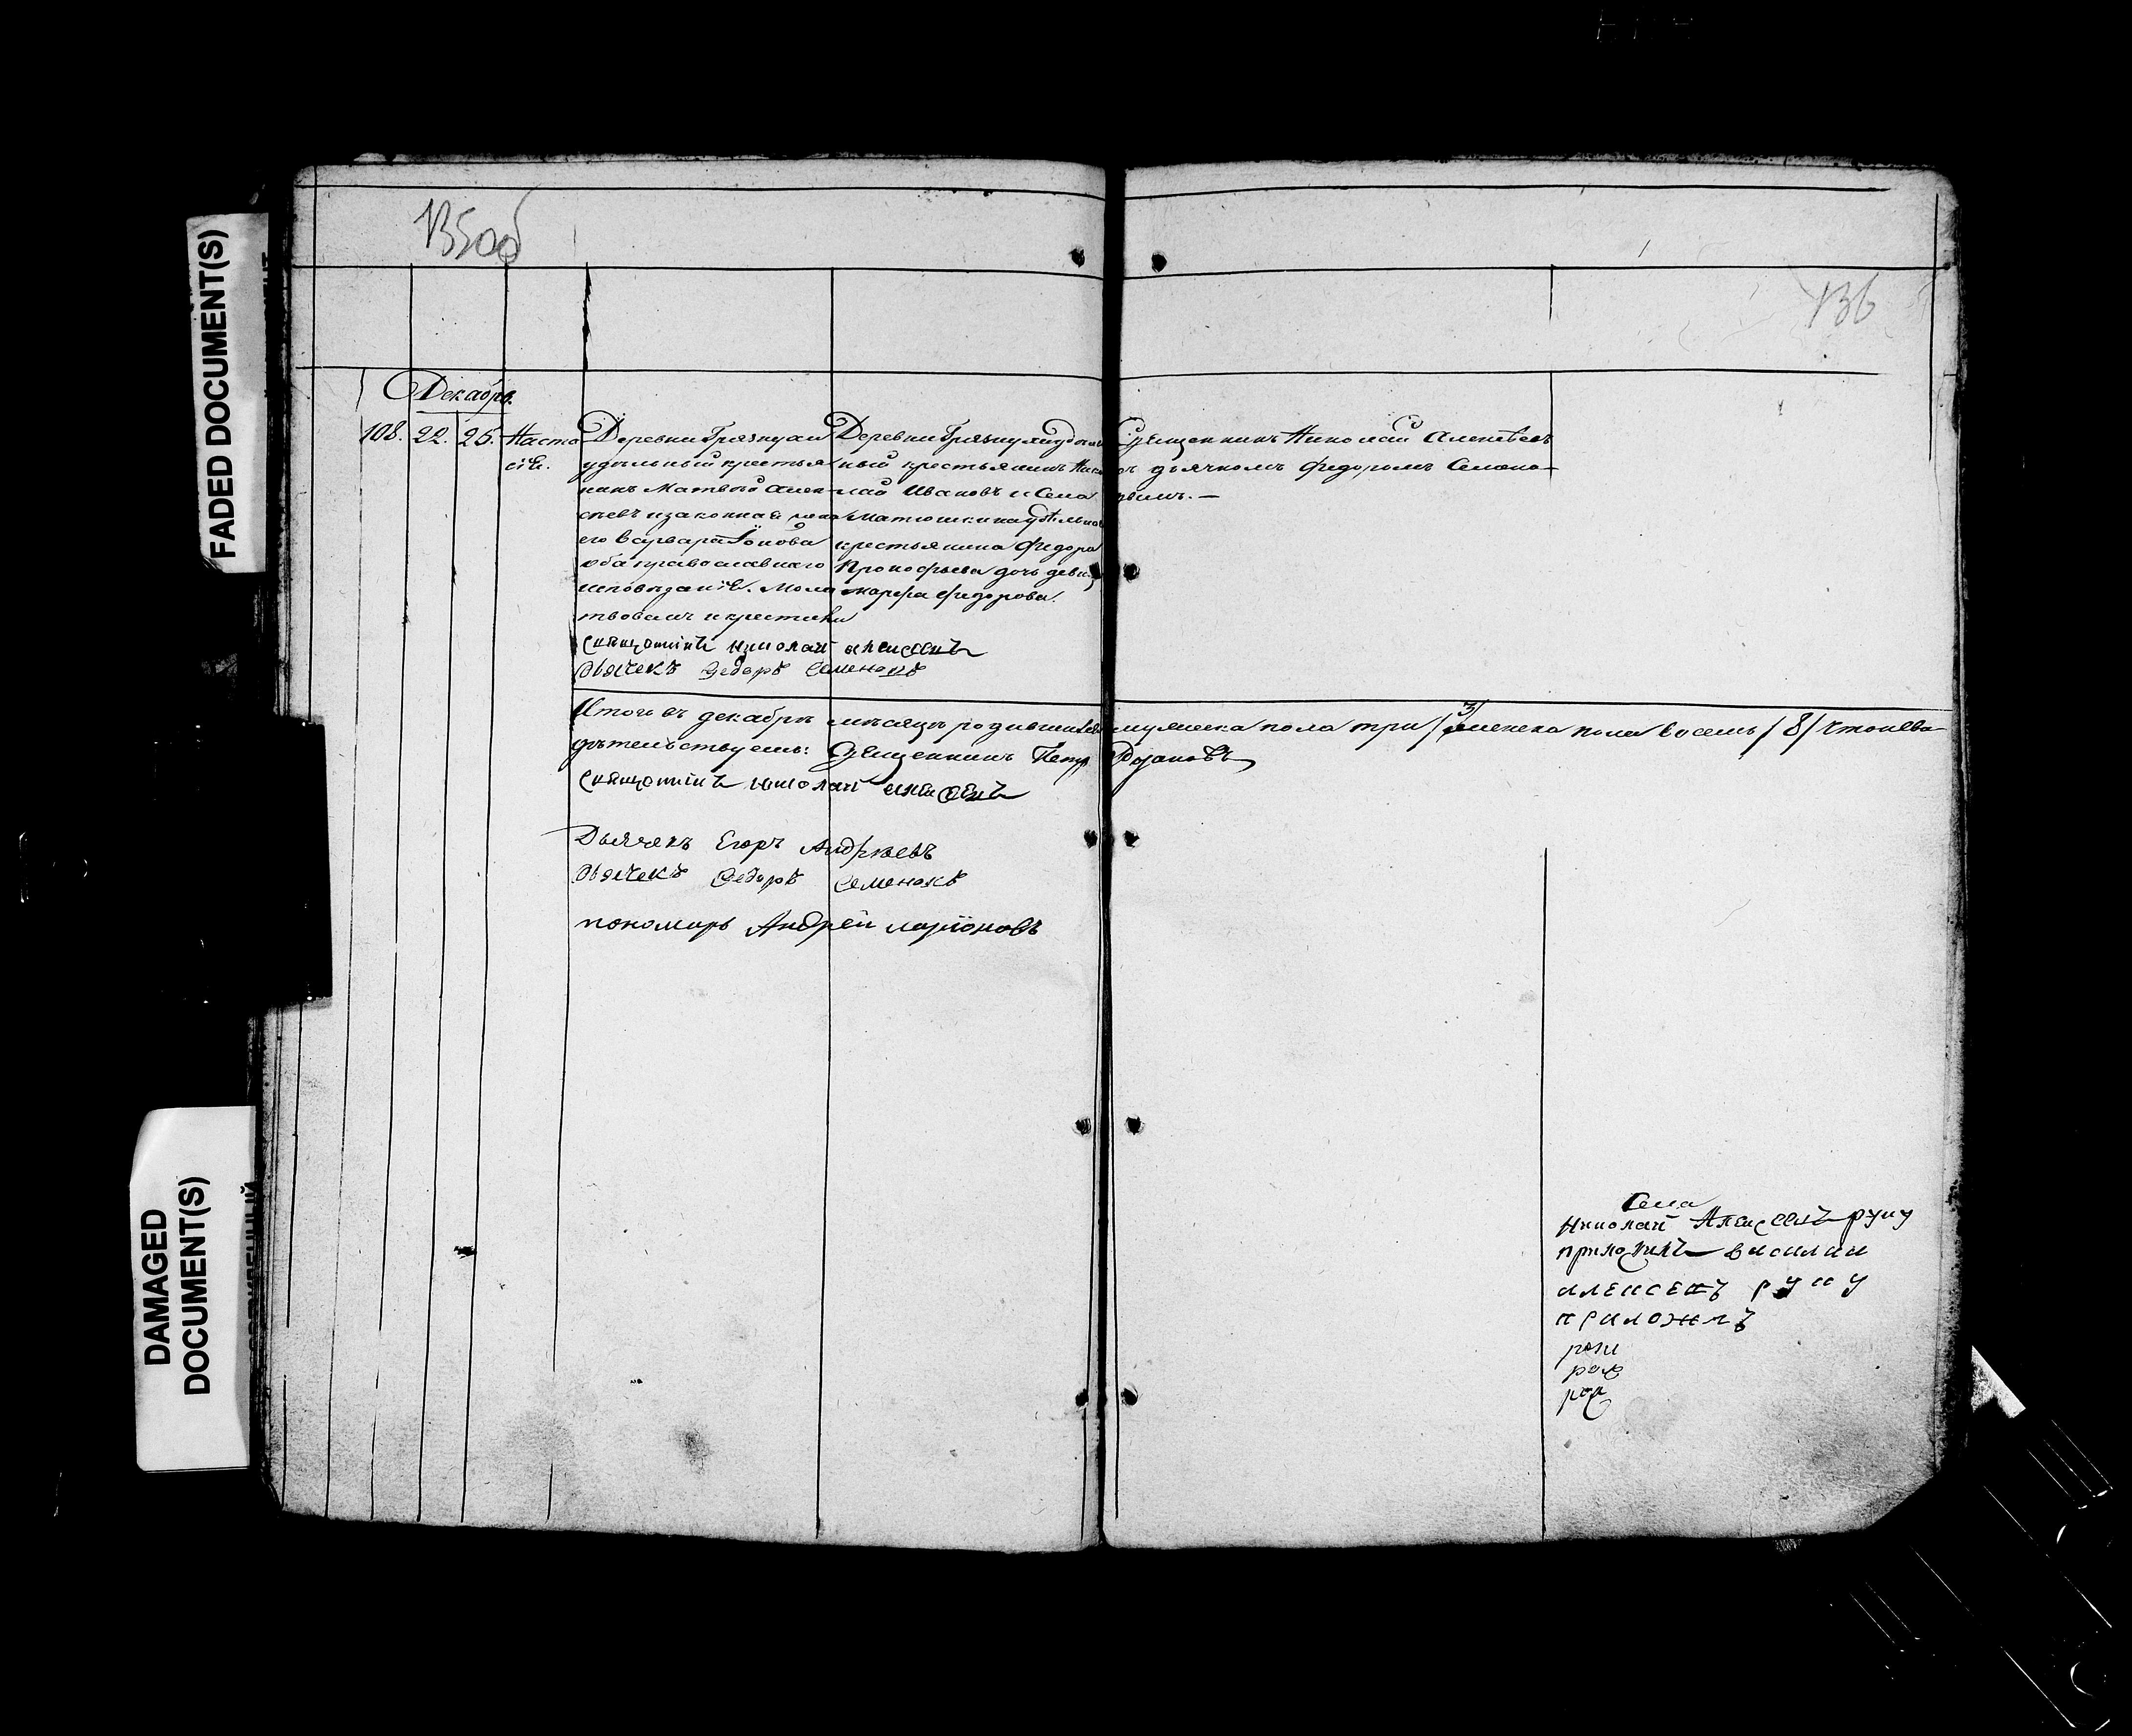 FADED DOCUMENT(S)
DAMAGED
DOCUMENT(S)
135об
136
Декабрь.
108. 22. 25. Наста
сiѣ.
Деревни Грязнухи
удѣльный крестья
нинъ Матвѣй Алек
сѣевъ и законная жена
его Варвара Iонова
оба православнаго
исповѣданiѣ. Моли
твовалъ и крестилъ
Деревни Грязнухи удѣль
ный крестьянинъ Нико
лай Ивановъ и Села
Матюшкина удѣльнаго
крестьянина Федора
Прокофьева дочь девица
Марфа Федорова.
Священникъ Николай Алексѣевъ
съ дьячкомъ Федоромъ Семено-
вымъ. —
священникъ николай алексеевъ
дьячекъ Федоръ Семеновъ
Итого въ декабрѣ мѣсяцѣ родившихся мужеска пола три /3/ женска пола восемь /8/ Что и сви-
дѣтельствуемъ: Священникъ Петръ Розановъ
священникъ николай алексеевъ
Дьячекъ Егоръ Андрѣевъ
дьячекъ Федоръ Семеновъ
пономарь Андрей ларiоновъ
Села
николай Алексеевъ руку
приложилъ василии
алексевъ руку
приложилъ